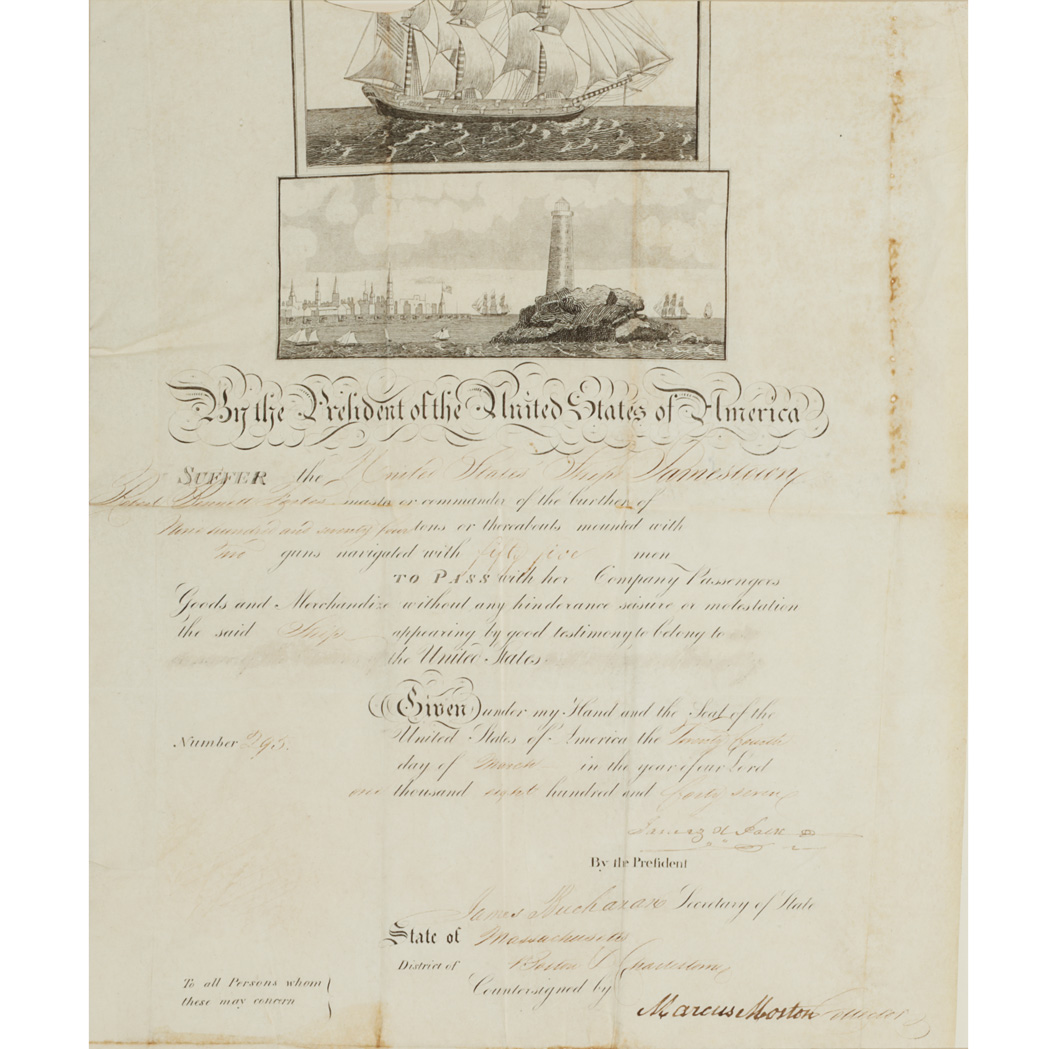 By the President of the United States of America
SUFFER the United States' Ship Jamestown
Robert Bennett Forbes master or commander of the burthen of
Nine hundred and seventy four tons or thereabouts mounted with
two guns navigated with fifty five men
TO PASS with her Company Passengers
Goods and Merchandize without any hinderance seisure or molestation
the said Ship appearing by good testimony to belong to
the United States
Given under my Hand and the Seal of the
Number 293. United States of America the Twenty fourth
day of March in the year of our Lord
one thousand eight hundred and forty seven
James K Polk
By the President
James Buchanan Secretary of State
State of Massachusetts
District of Boston & Charlestown
To all Persons whom
these may concern
Countersigned by
Marcus Morton Collector